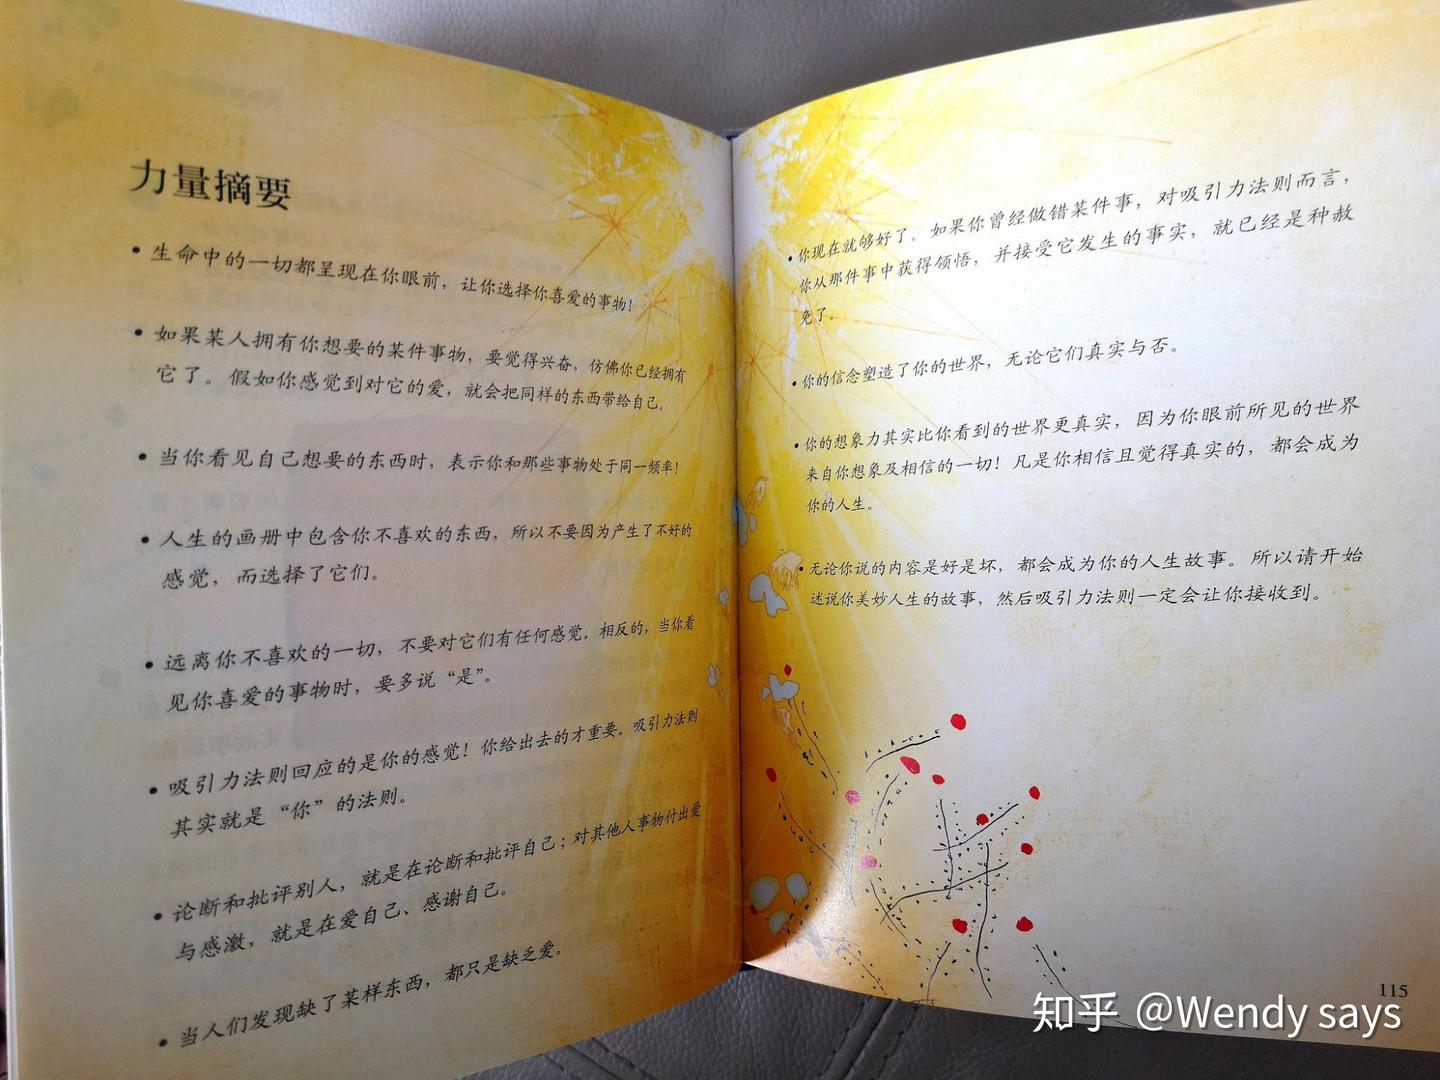 力量摘要
• 生命中的一切都呈现在你眼前，让你选择你喜爱的事物！
• 如果某人拥有你想要的某件事物，要觉得兴奋，仿佛你已经拥有
它了。假如你感觉到对它的爱，就会把同样的东西带给自己。
• 当你看见自己想要的东西时，表示你和那些事物处于同一频率！
• 人生的画册中包含你不喜欢的东西，所以不要因为产生了不好的
感觉，而选择了它们。
• 远离你不喜欢的一切，不要对它们有任何感觉。相反的，当你看
见你喜爱的事物时，要多说“是”。
• 吸引力法则回应的是你的感觉！你给出去的才重要。吸引力法则
其实就是“你”的法则。
• 论断和批评别人，就是在论断和批评自己；对其他人事物付出爱
与感激，就是在爱自己、感谢自己。
• 当人们发现缺了某样东西，都只是缺乏爱。
• 你现在就够好了。如果你曾经做错某件事，对吸引力法则而言，
你从那件事中获得领悟，并接受它发生的事实，就已经是种赦
免了。
• 你的信念塑造了你的世界，无论它们真实与否。
• 你的想象力其实比你看到的世界更真实，因为你眼前所见的世界
来自你想象及相信的一切！凡是你相信且觉得真实的，都会成为
你的人生。
• 无论你说的内容是好是坏，都会成为你的人生故事。所以请开始
述说你美妙人生的故事，然后吸引力法则一定会让你接收到。
115
知乎 @Wendy says